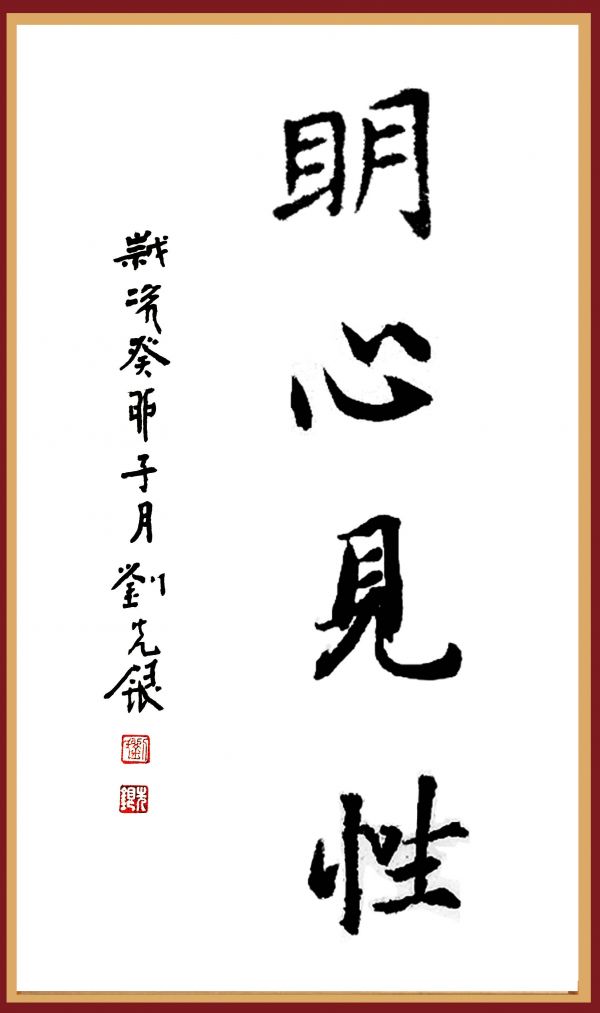 眀心見性
歲次癸卯子月劉先銀
劉
先銀